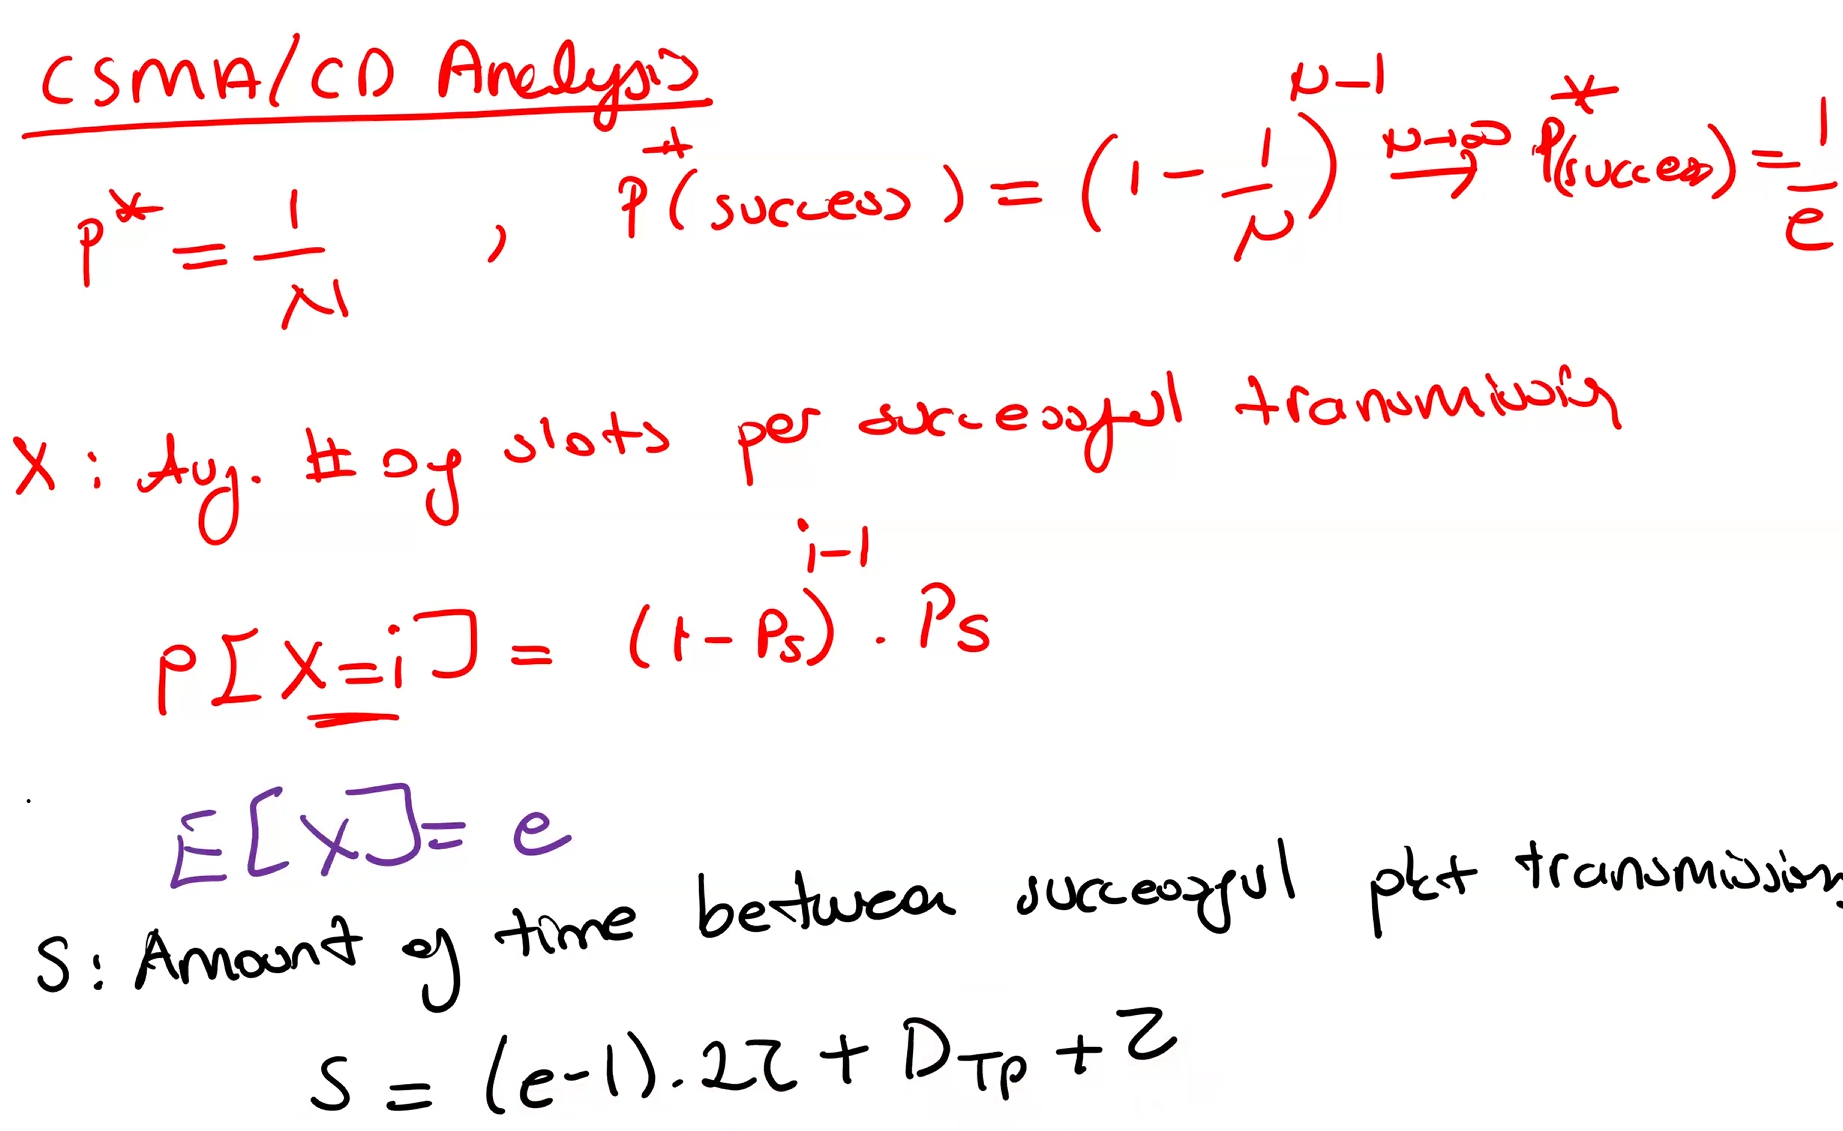 CSMA/CD Analysis
P* = 1/N , P*(success) = (1 - 1/N)^(N-1) →(N→∞) P*(success) = 1/e
X : Avg. # of slots per successful transmission
P[X=i] = (1-Ps)^(i-1) . Ps
E[X] = e
S: Amount of time between successful pkt transmission
S = (e-1).2τ + D_TP + τ